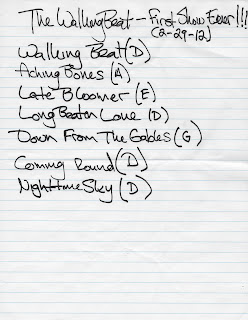 The Walking Beat - First Show Ever!!!
(2-29-12)
Walking Beat (D)
Aching Bones (A)
Late Bloomer (E)
Long Beaten Love (D)
Down From The Gables (G)
Coming Round (D)
Nighttime Sky (D)